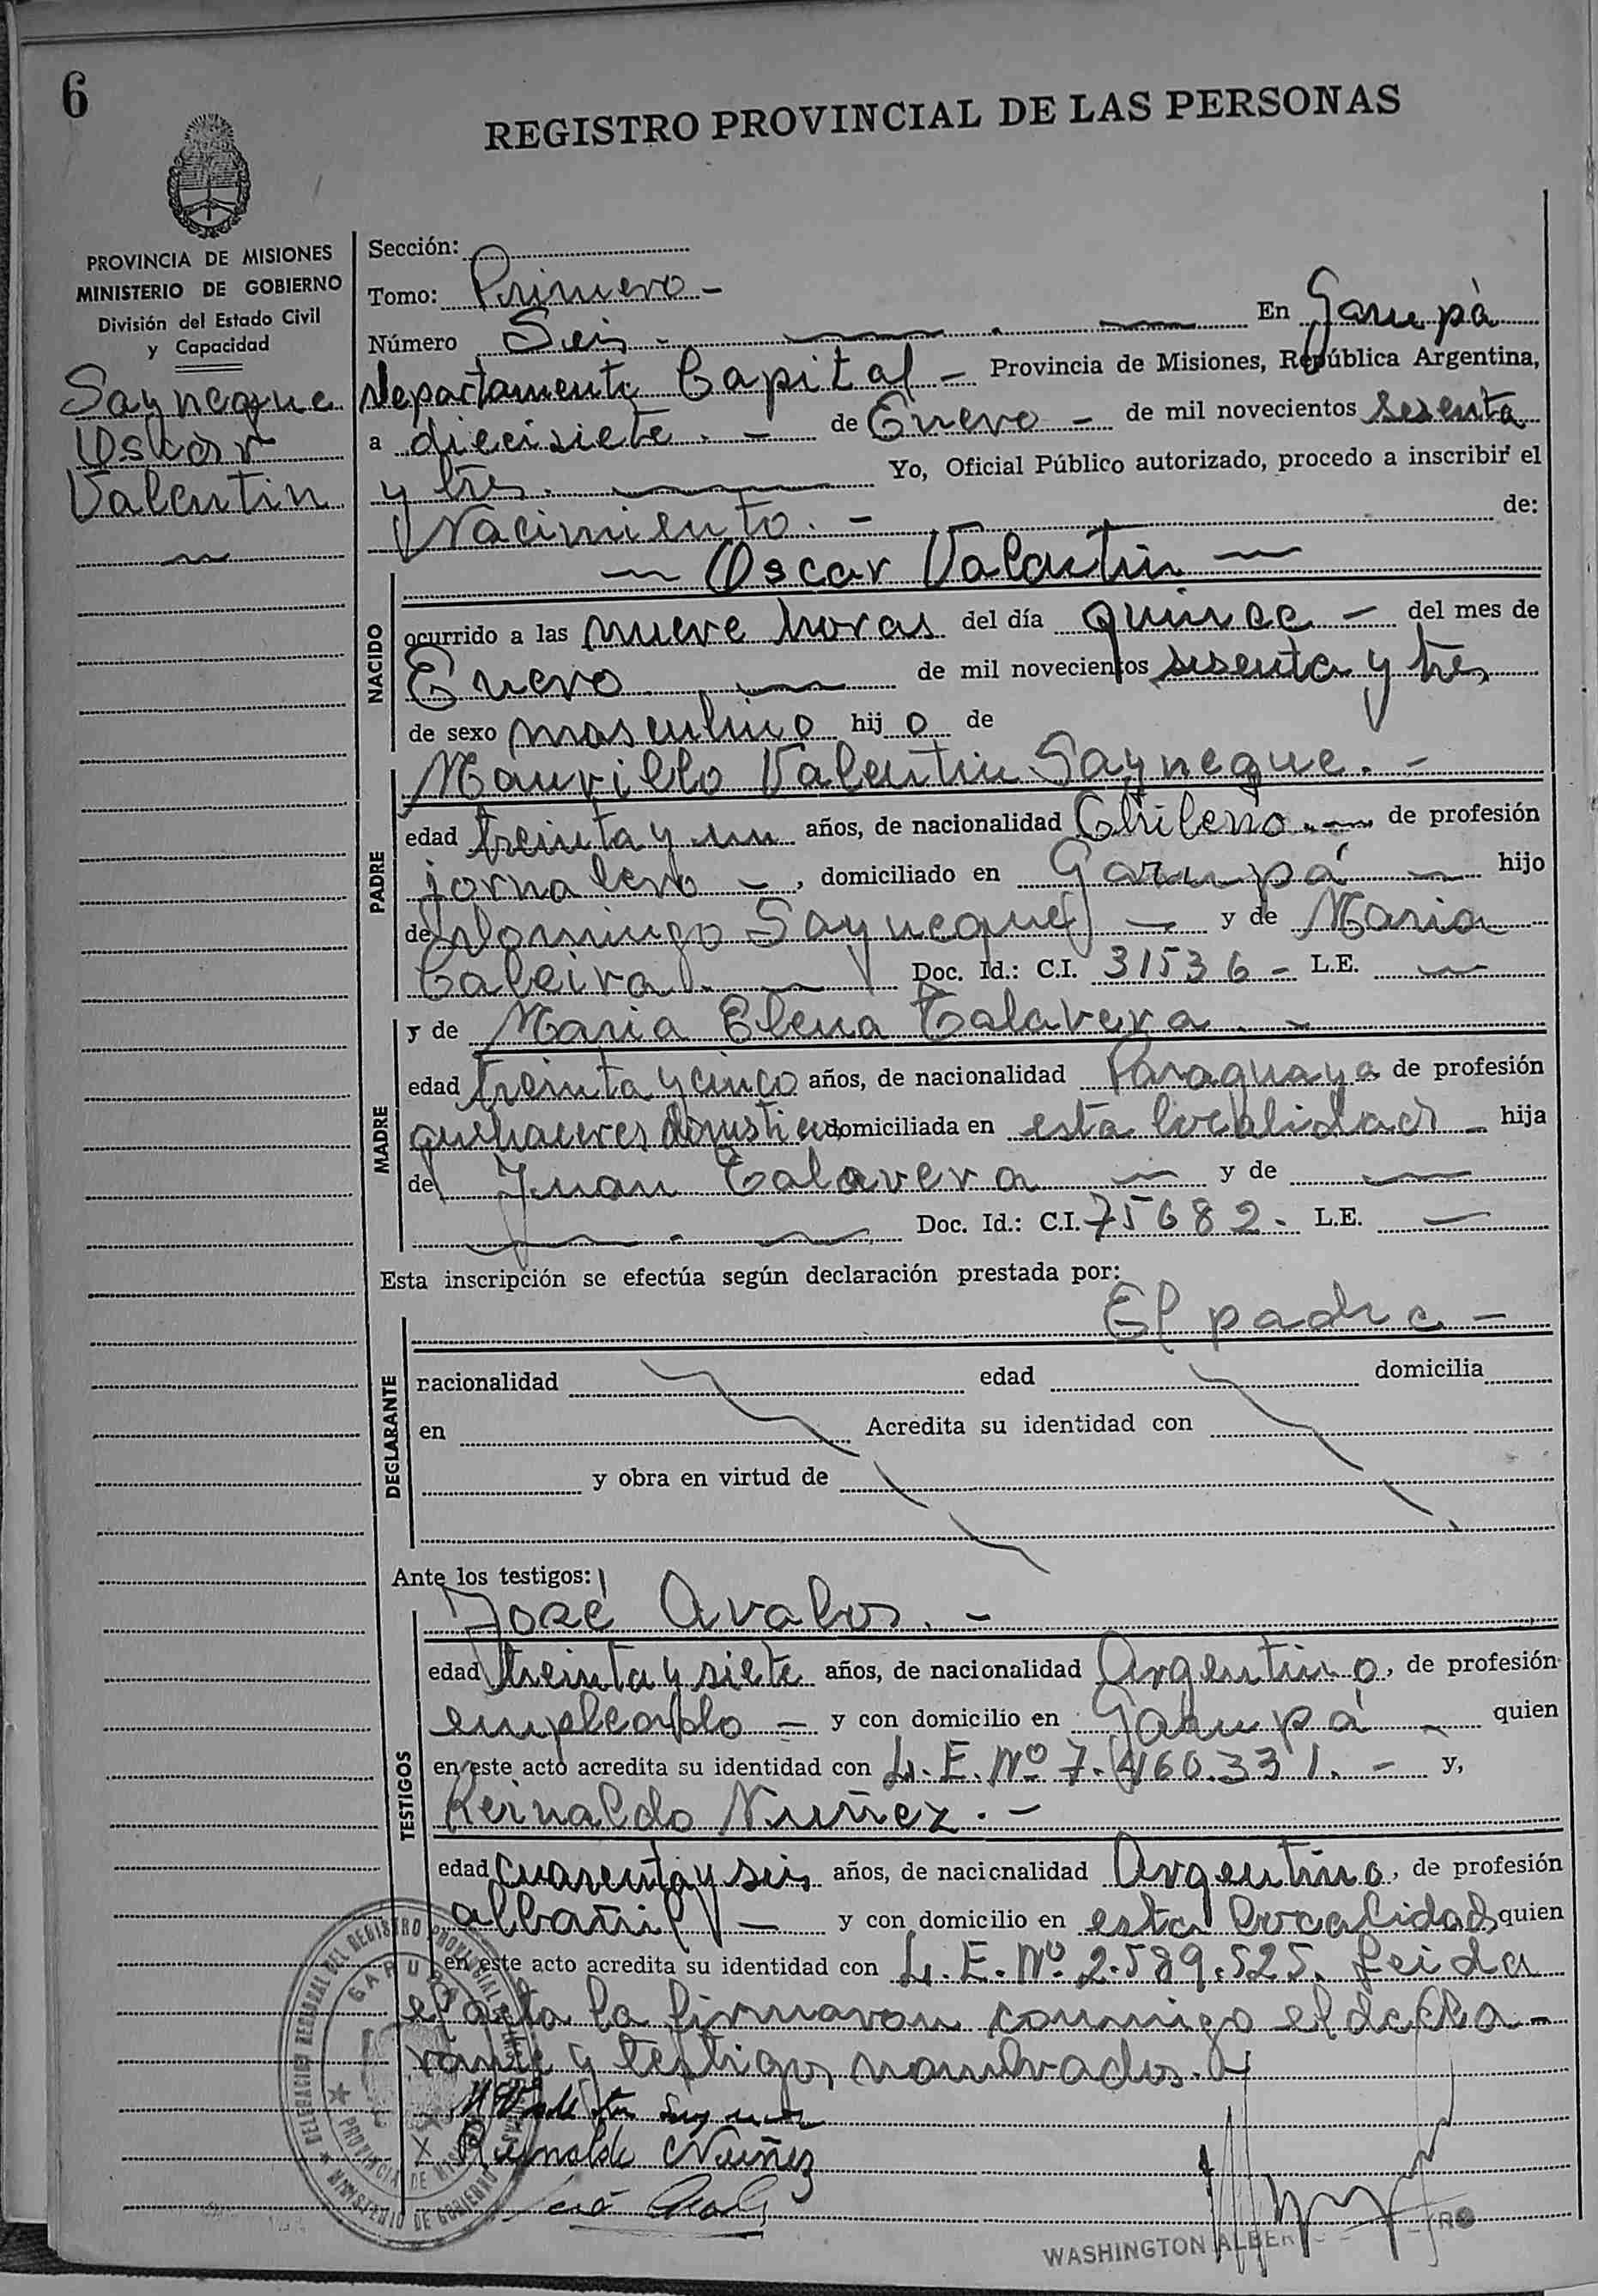 6
REGISTRO PROVINCIAL DE LAS PERSONAS
PROVINCIA DE MISIONES
MINISTERIO DE GOBIERNO
División del Estado Civil
y Capacidad
Sayneque
Oskar
Valentin
Sección:
Tomo: Primero -
Número Seis - En Garupá
departamento Capital - Provincia de Misiones, República Argentina,
a diecisiete. - de Enero - de mil novecientos sesenta
y tres. Yo, Oficial Público autorizado, procedo a inscribir el
Nacimiento. - de:
Oscar Valentin
NACIDO
ocurrido a las nueve horas del día quince - del mes de
Enero de mil novecientos sesenta y tres
de sexo masculino hij o de
Maurillo Valentin Sayneque. -
PADRE
edad treinta y un años, de nacionalidad Chileno. - de profesión
jornalero -, domiciliado en Garupá - hijo
de Domingo Sayneque - y de Maria
Caleira. - Doc. Id.: C.I. 31536 - L.E. -
MADRE
y de Maria Elena Talavera. -
edad treinta y cinco años, de nacionalidad Paraguaya de profesión
quehaceres domesticos domiciliada en esta localidad - hija
de Juan Talavera - y de -
Doc. Id.: C.I. 75682. L.E. -
Esta inscripción se efectúa según declaración prestada por:
El padre -
DECLARANTE
nacionalidad edad domicilia
en Acredita su identidad con
y obra en virtud de
Ante los testigos:
José Avalos. -
TESTIGOS
edad treinta y siete años, de nacionalidad Argentino, de profesión
empleado - y con domicilio en Garupá - quien
en este acto acredita su identidad con L. E. Nº 7.460.331. - y,
Reinaldo Nuñez. -
edad cuarenta y seis años, de nacionalidad Argentino, de profesión
albañil - y con domicilio en esta localidad quien
en este acto acredita su identidad con L. E. Nº 2.589.525. Leida
el acta la firmaron conmigo el decla-
rante y testigos nombrados. -
X Reinaldo Nuñez
DELEGACION REGIONAL DEL REGISTRO PROVINCIAL DE LAS PERSONAS
GARUPA
PROVINCIA DE MISIONES
MINISTERIO DE GOBIERNO
WASHINGTON